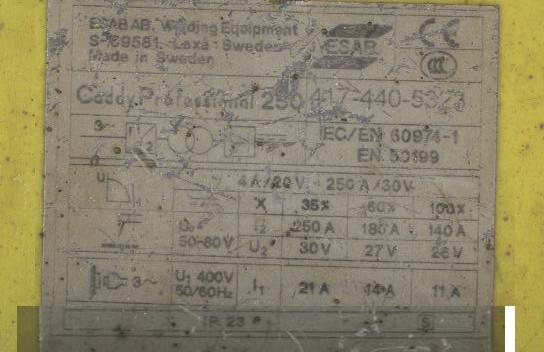 ESAB AB, Welding Equipment
S-69581 Laxå Sweden
Made in Sweden
ESAB
CE
CCC
Caddy Professional 250 417-440-5323
3~ f1 f2
IEC/EN 60974-1
EN 50199
4 A/20 V - 250 A/30V
X 35% 60% 100%
U₀ 50-80V
I₂ 250 A 185 A 140 A
U₂ 30V 27V 26V
3~ U₁ 400V 50/60Hz
I₁ 21 A 14 A 11 A
IP 23 S